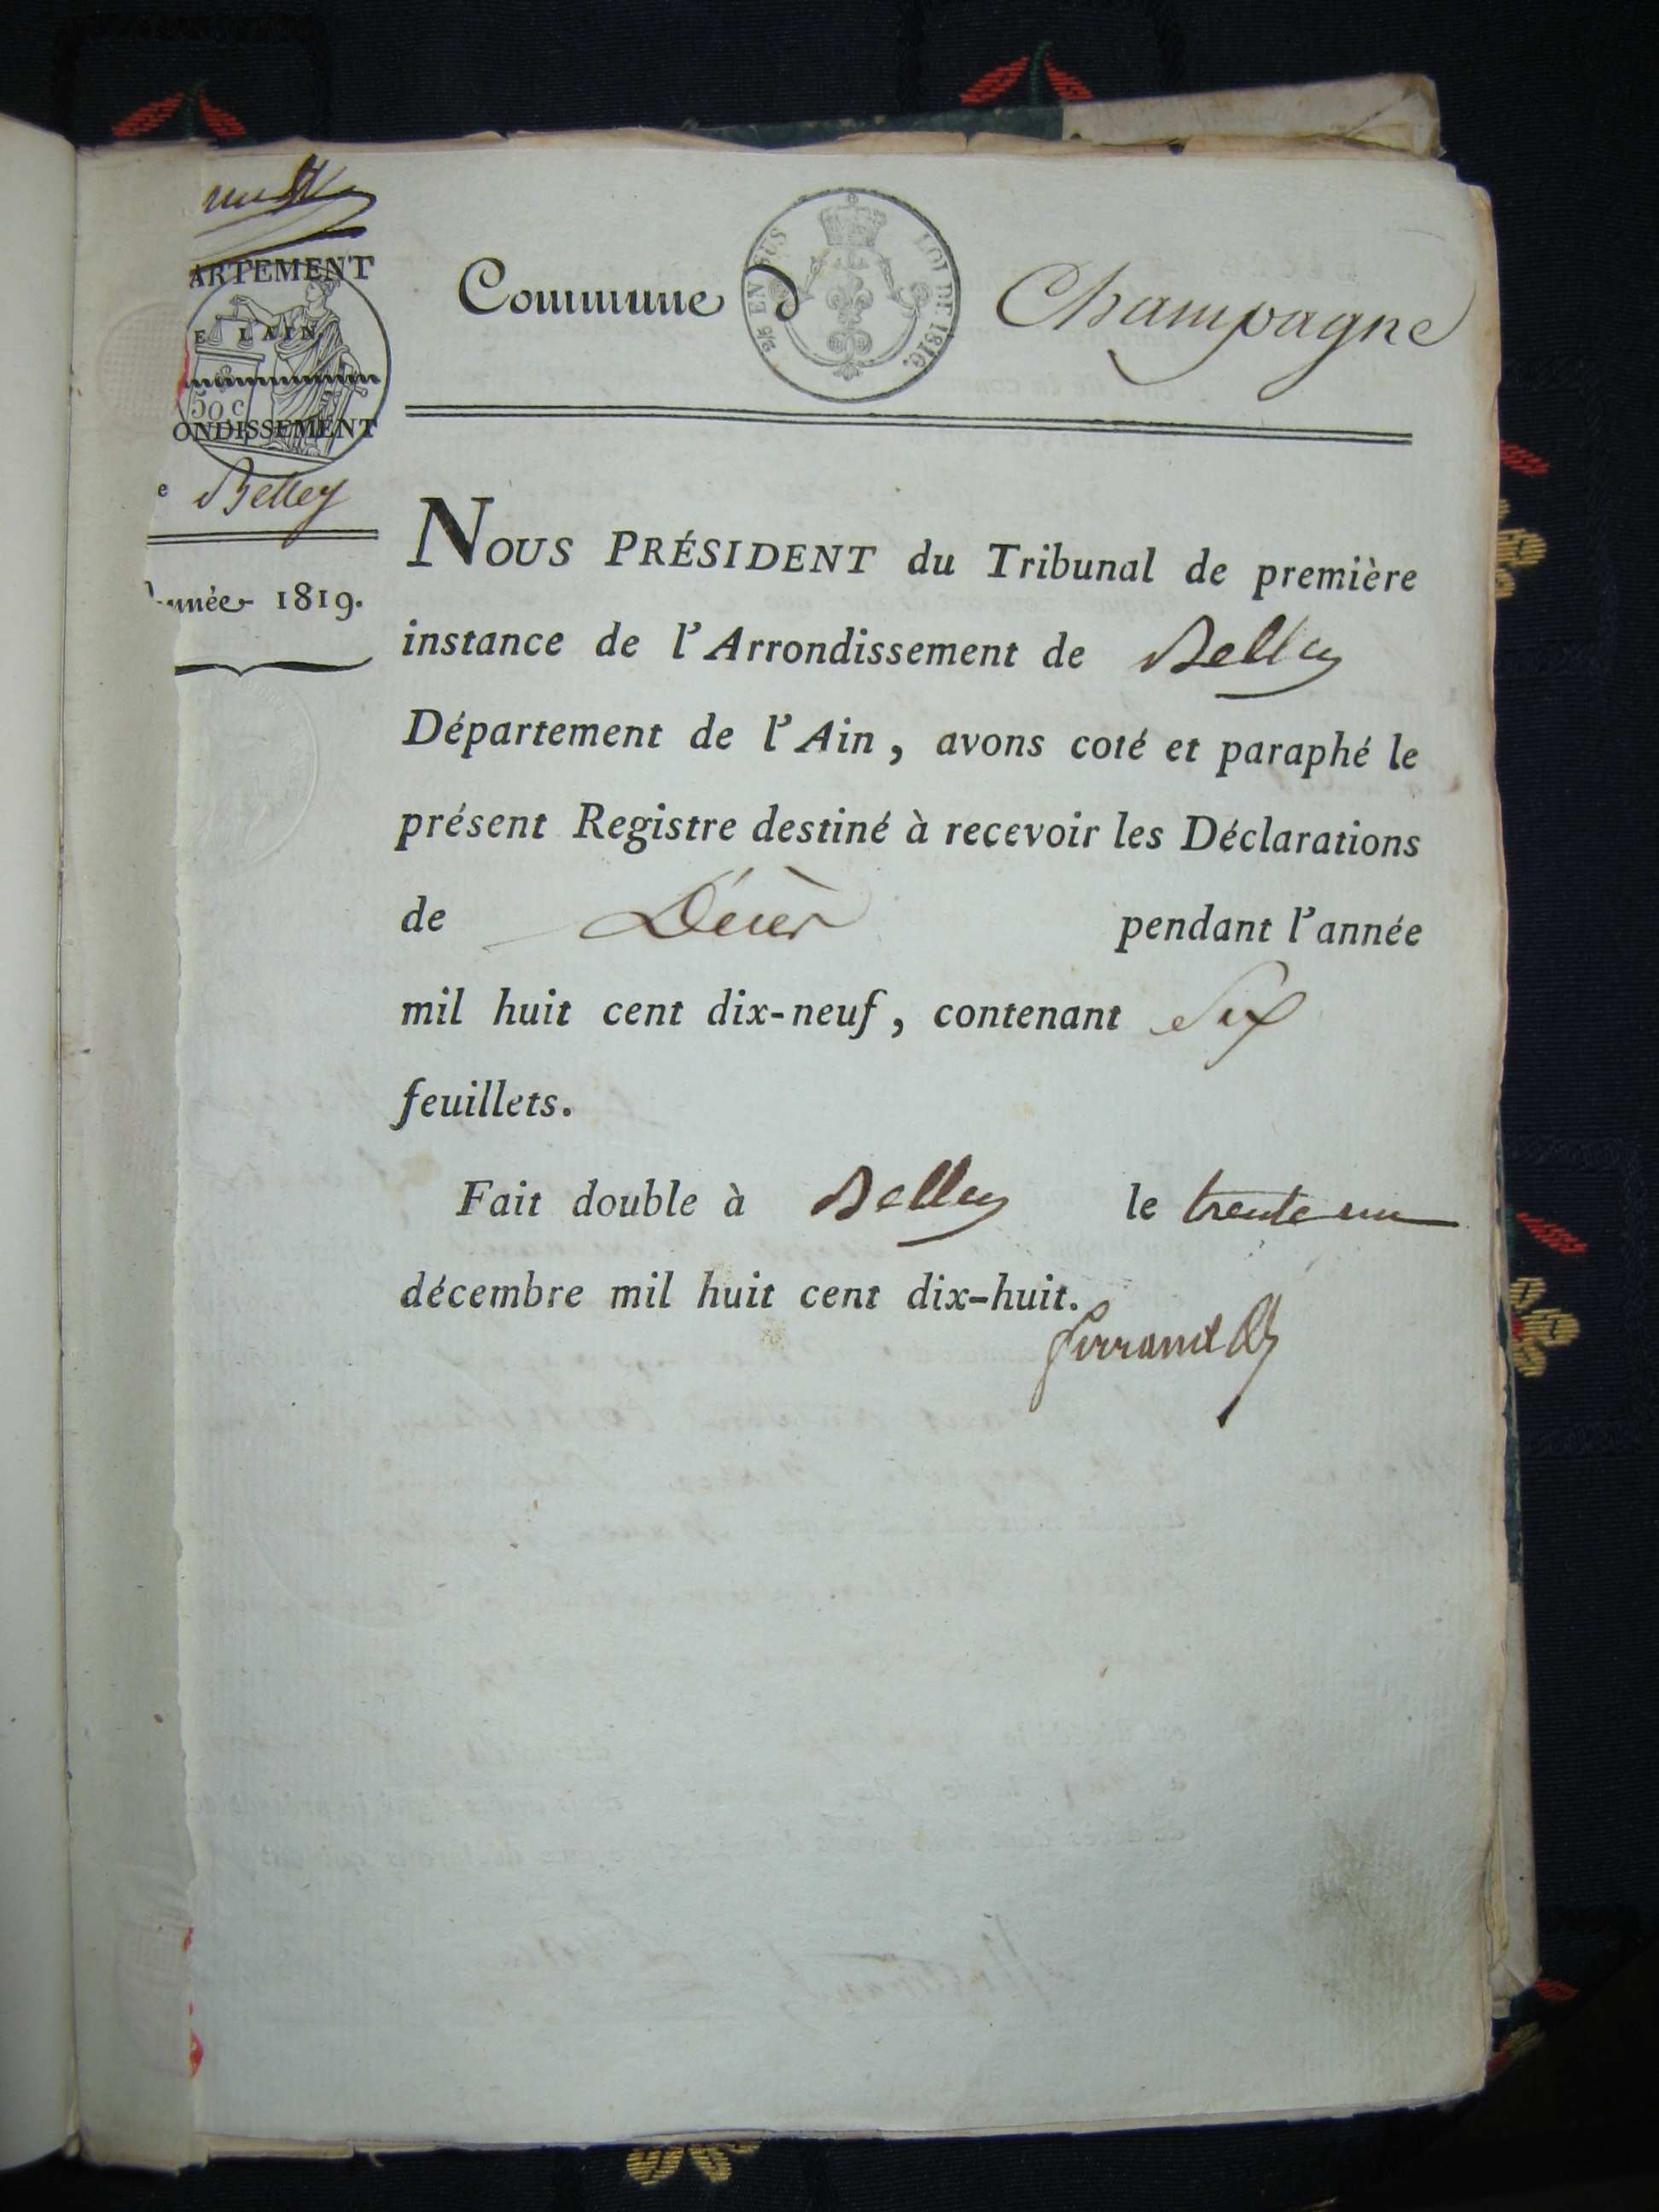 ARTEMENT
E L'AIN
50 c
ONDISSEMENT
e Belley
nnée 1819.
Commune d Champagne
¼ EN SUS LOI DE 1816.
NOUS PRÉSIDENT du Tribunal de première
instance de l'Arrondissement de Belley
Département de l'Ain, avons coté et paraphé le
présent Registre destiné à recevoir les Déclarations
de Décès pendant l'année
mil huit cent dix-neuf, contenant Six
feuillets.
Fait double à Belley le trente un
décembre mil huit cent dix-huit.